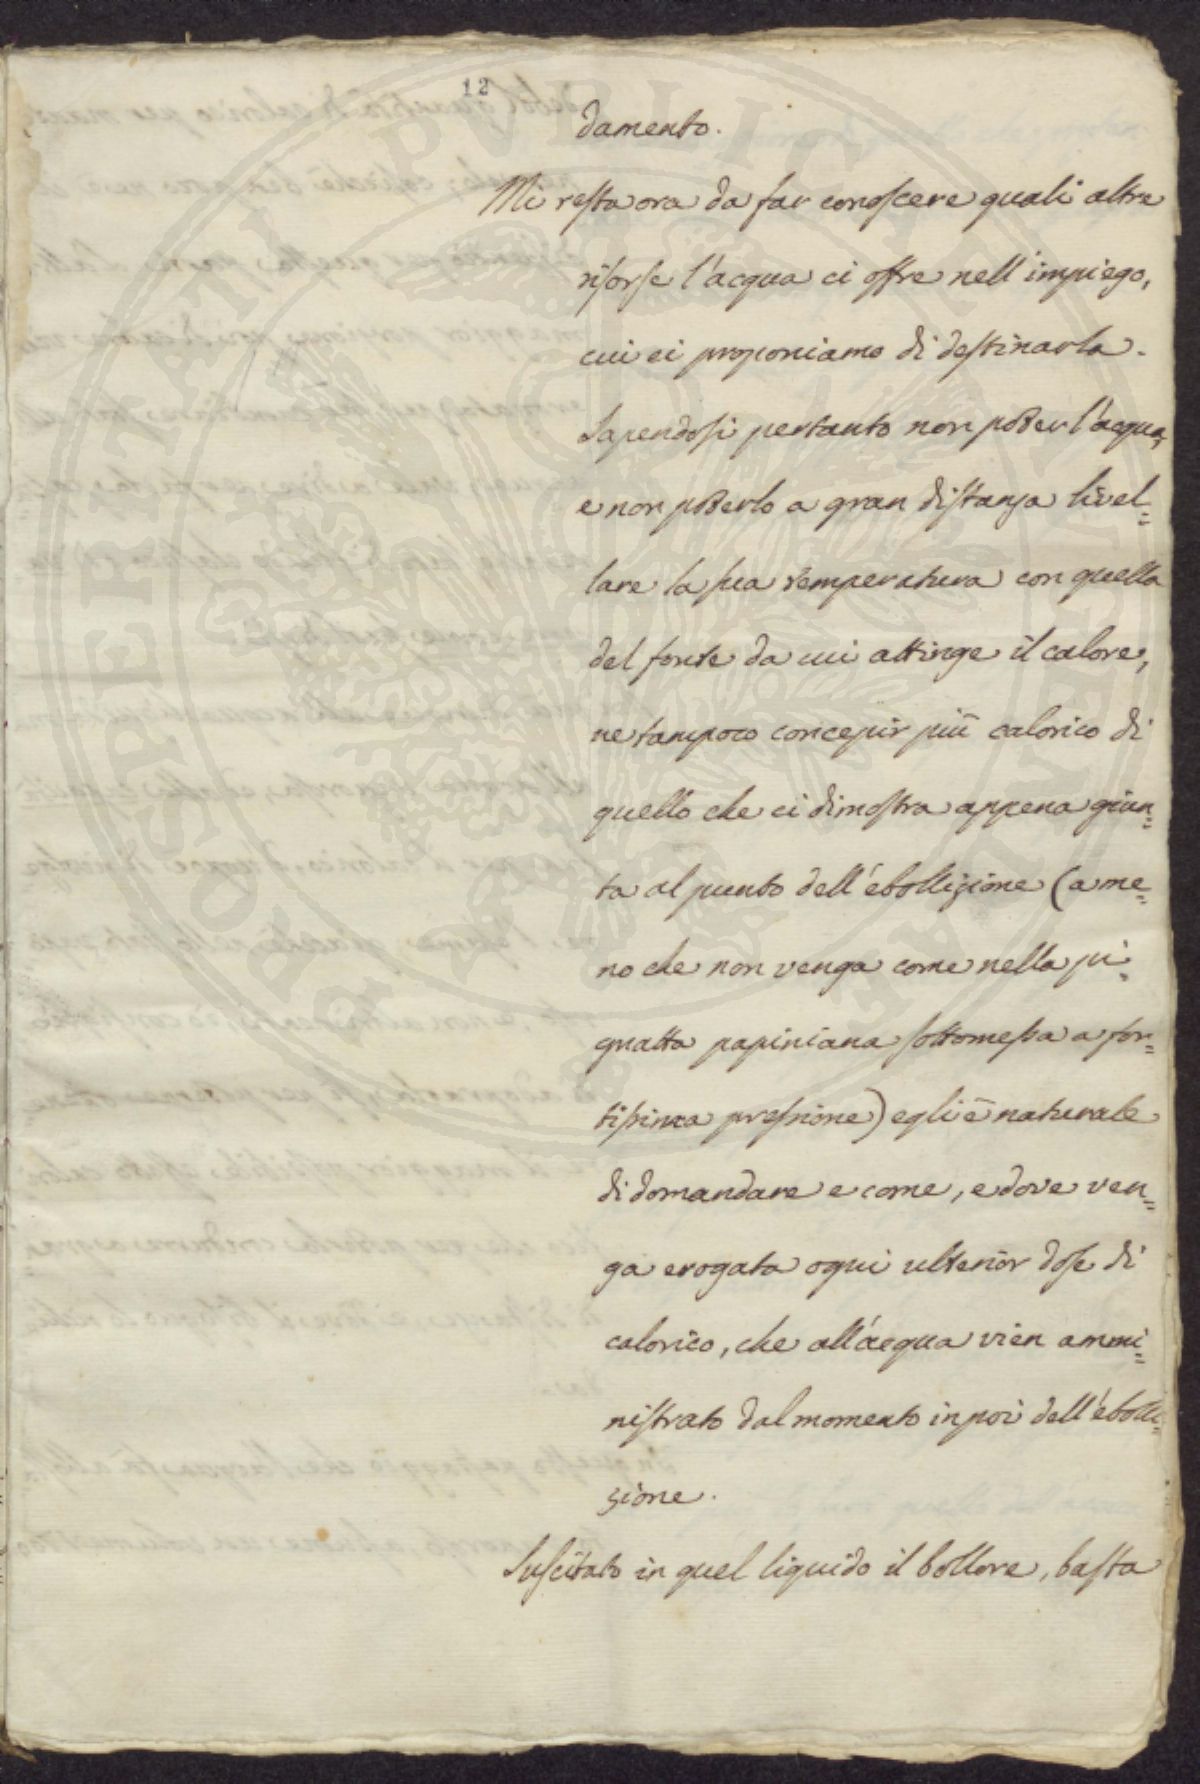 12
damento.
Mi resta ora da far conoscere quali altre
risorse l'acqua ci offre nell'impiego,
cui ci proponiamo di destinarla.
Sapendosi pertanto non poter l'acqua,
e non poterlo a gran distanza livel=
lare la sua temperatura con quella
del fonte da cui attinge il calore,
ne tampoco concepir più calorico di
quello che ci dimostra appena giun=
ta al punto dell'ebollizione (a me=
no che non venga come nella pi=
gnatta papiniana sottomessa a for=
tissima pressione) egli è naturale
di domandare e come, e dove ven=
ga erogata ogni ulterior dose di
calorico, che all'acqua vien ammi=
nistrato dal momento in poi dell'ebolli=
zione.
Suscitato in quel liquido il bollore, basta
PROSPERITATI PVBLICAE AVGENDAE